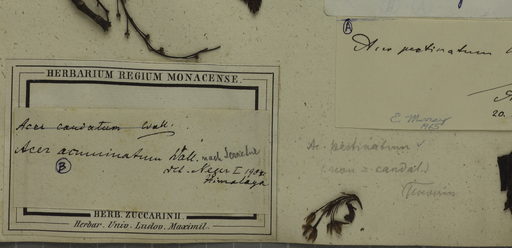 HERBARIUM REGIUM MONACENSE.
Acer caudatum Wall.
Acer acuminatum Wall.
B
det. Neger I 1901
Himalaya
HERB. ZUCCARINII.
Herbar. Univ. Ludov. Maximil.
A
Acer pectinatum
20.
E. Murray
1965
Ac. pectinatum
(non = caudat.)